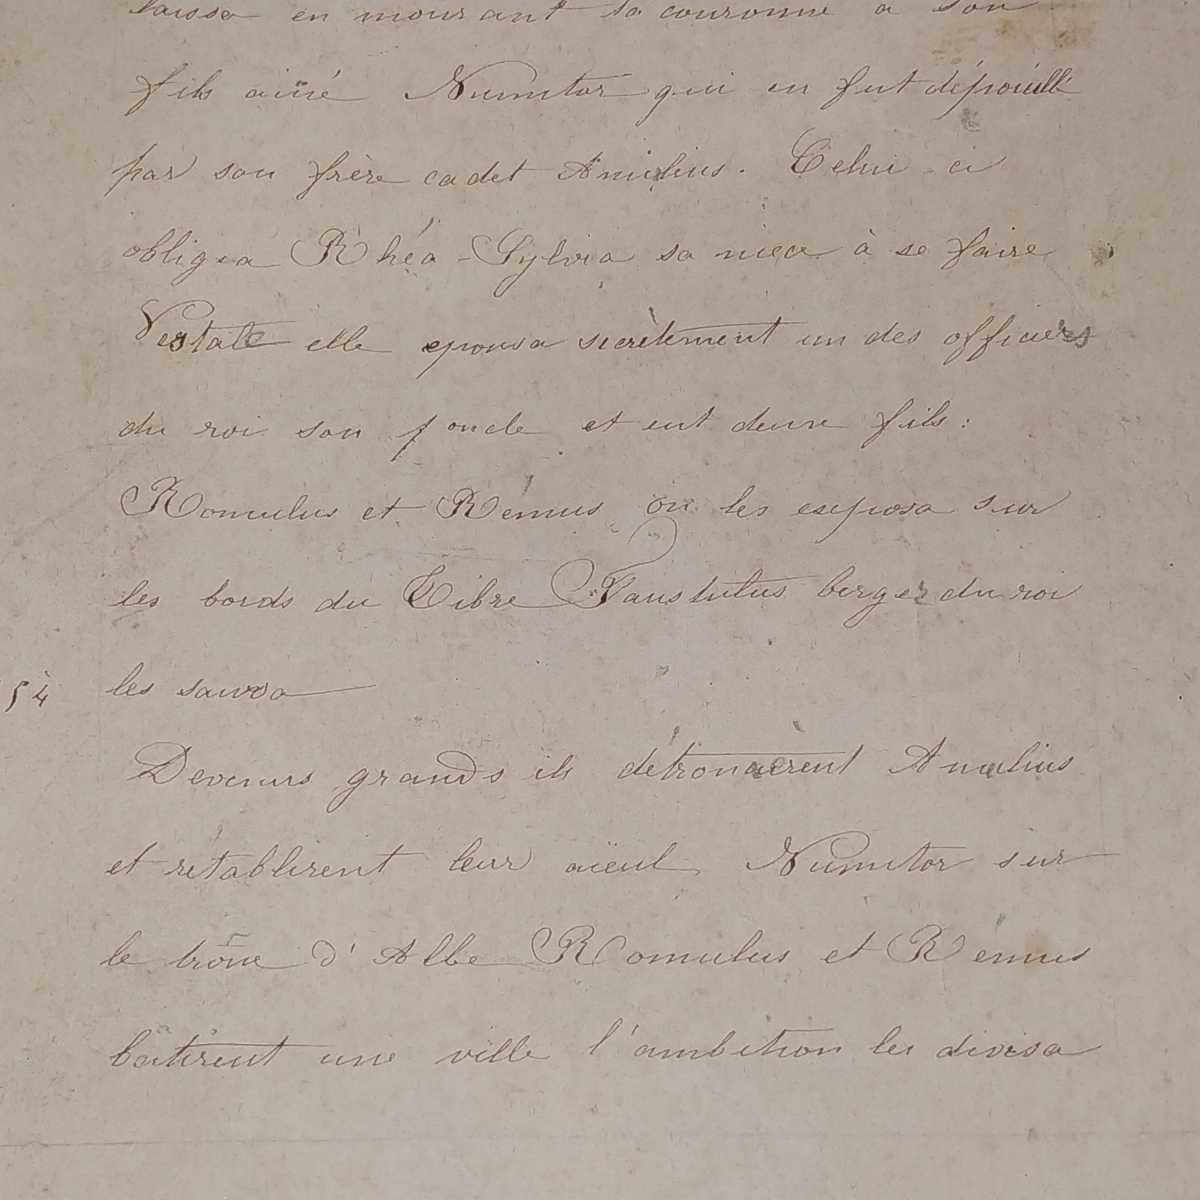 laissa en mourant sa couronne a son
fils aîné Numitor qui en fut dépouillé
par son frère cadet Amulius. Celui-ci
obligea Rhéa-Sylvia sa niece à se faire
Vestale elle epousa secrètement un des officiers
du roi son oncle et eut deux fils :
Romulus et Rémus on les exposa sur
les bords du Tibre Faustulus berger du roi
les sauva
54
Devenus grands ils détronèrent Amulius
et rétablirent leur aïeul Numitor sur
le trône d'Albe Romulus et Rémus
bâtirent une ville l'ambition les divisa